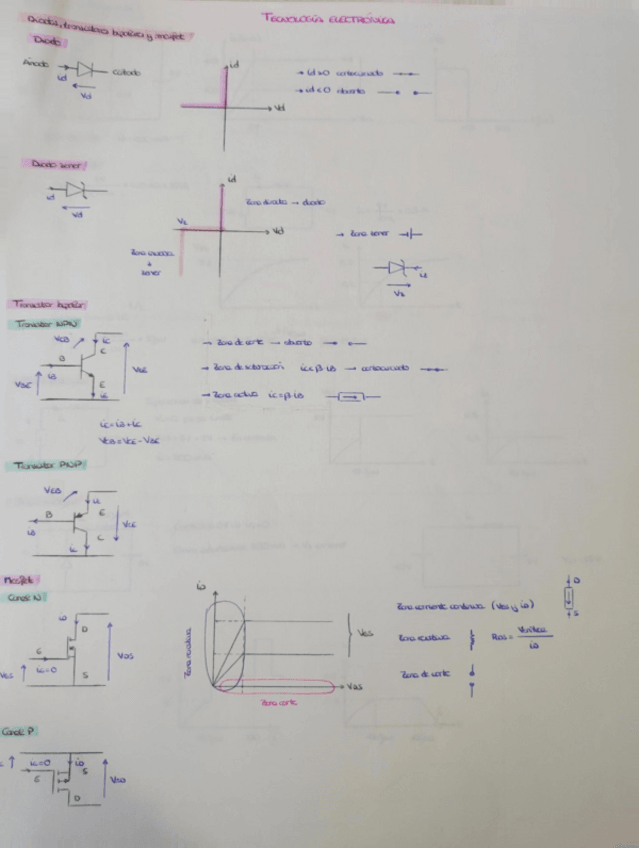 TECNOLOGÍA ELECTRÓNICA
Diodos, transistores bipolares y mosfet
Diodo
Ánodo
cátodo
id
Vd
id
Vd
→ id>0 cortocircuito
→ id<0 abierto
Diodo zener
id
Vd
id
Vz
Vd
Zona directa → diodo
Zona inversa
zener
→ Zona zener
id
Vz
Transistor bipolar
Transistor NPN
VCB
ic
C
B
iB
VBE
E
→ Zona de corte → abierto
→ Zona de saturación ic<β·iB → cortocircuito
→ Zona activa ic=β·iB
VCB=VCE-VBE
Transistor PNP
VCB
B
E
iB
VCE
ic
C
Mosfet
Canal N
iD
D
G
iG=0
S
VGS
VDS
iD
Zona resistiva
VGS
VDS
Zona corte
Zona corriente continua (VGS y iD)
Zona resistiva
iD
Zona de corte
D
S
Canal P
iG=0
iD
S
G
D
VSD